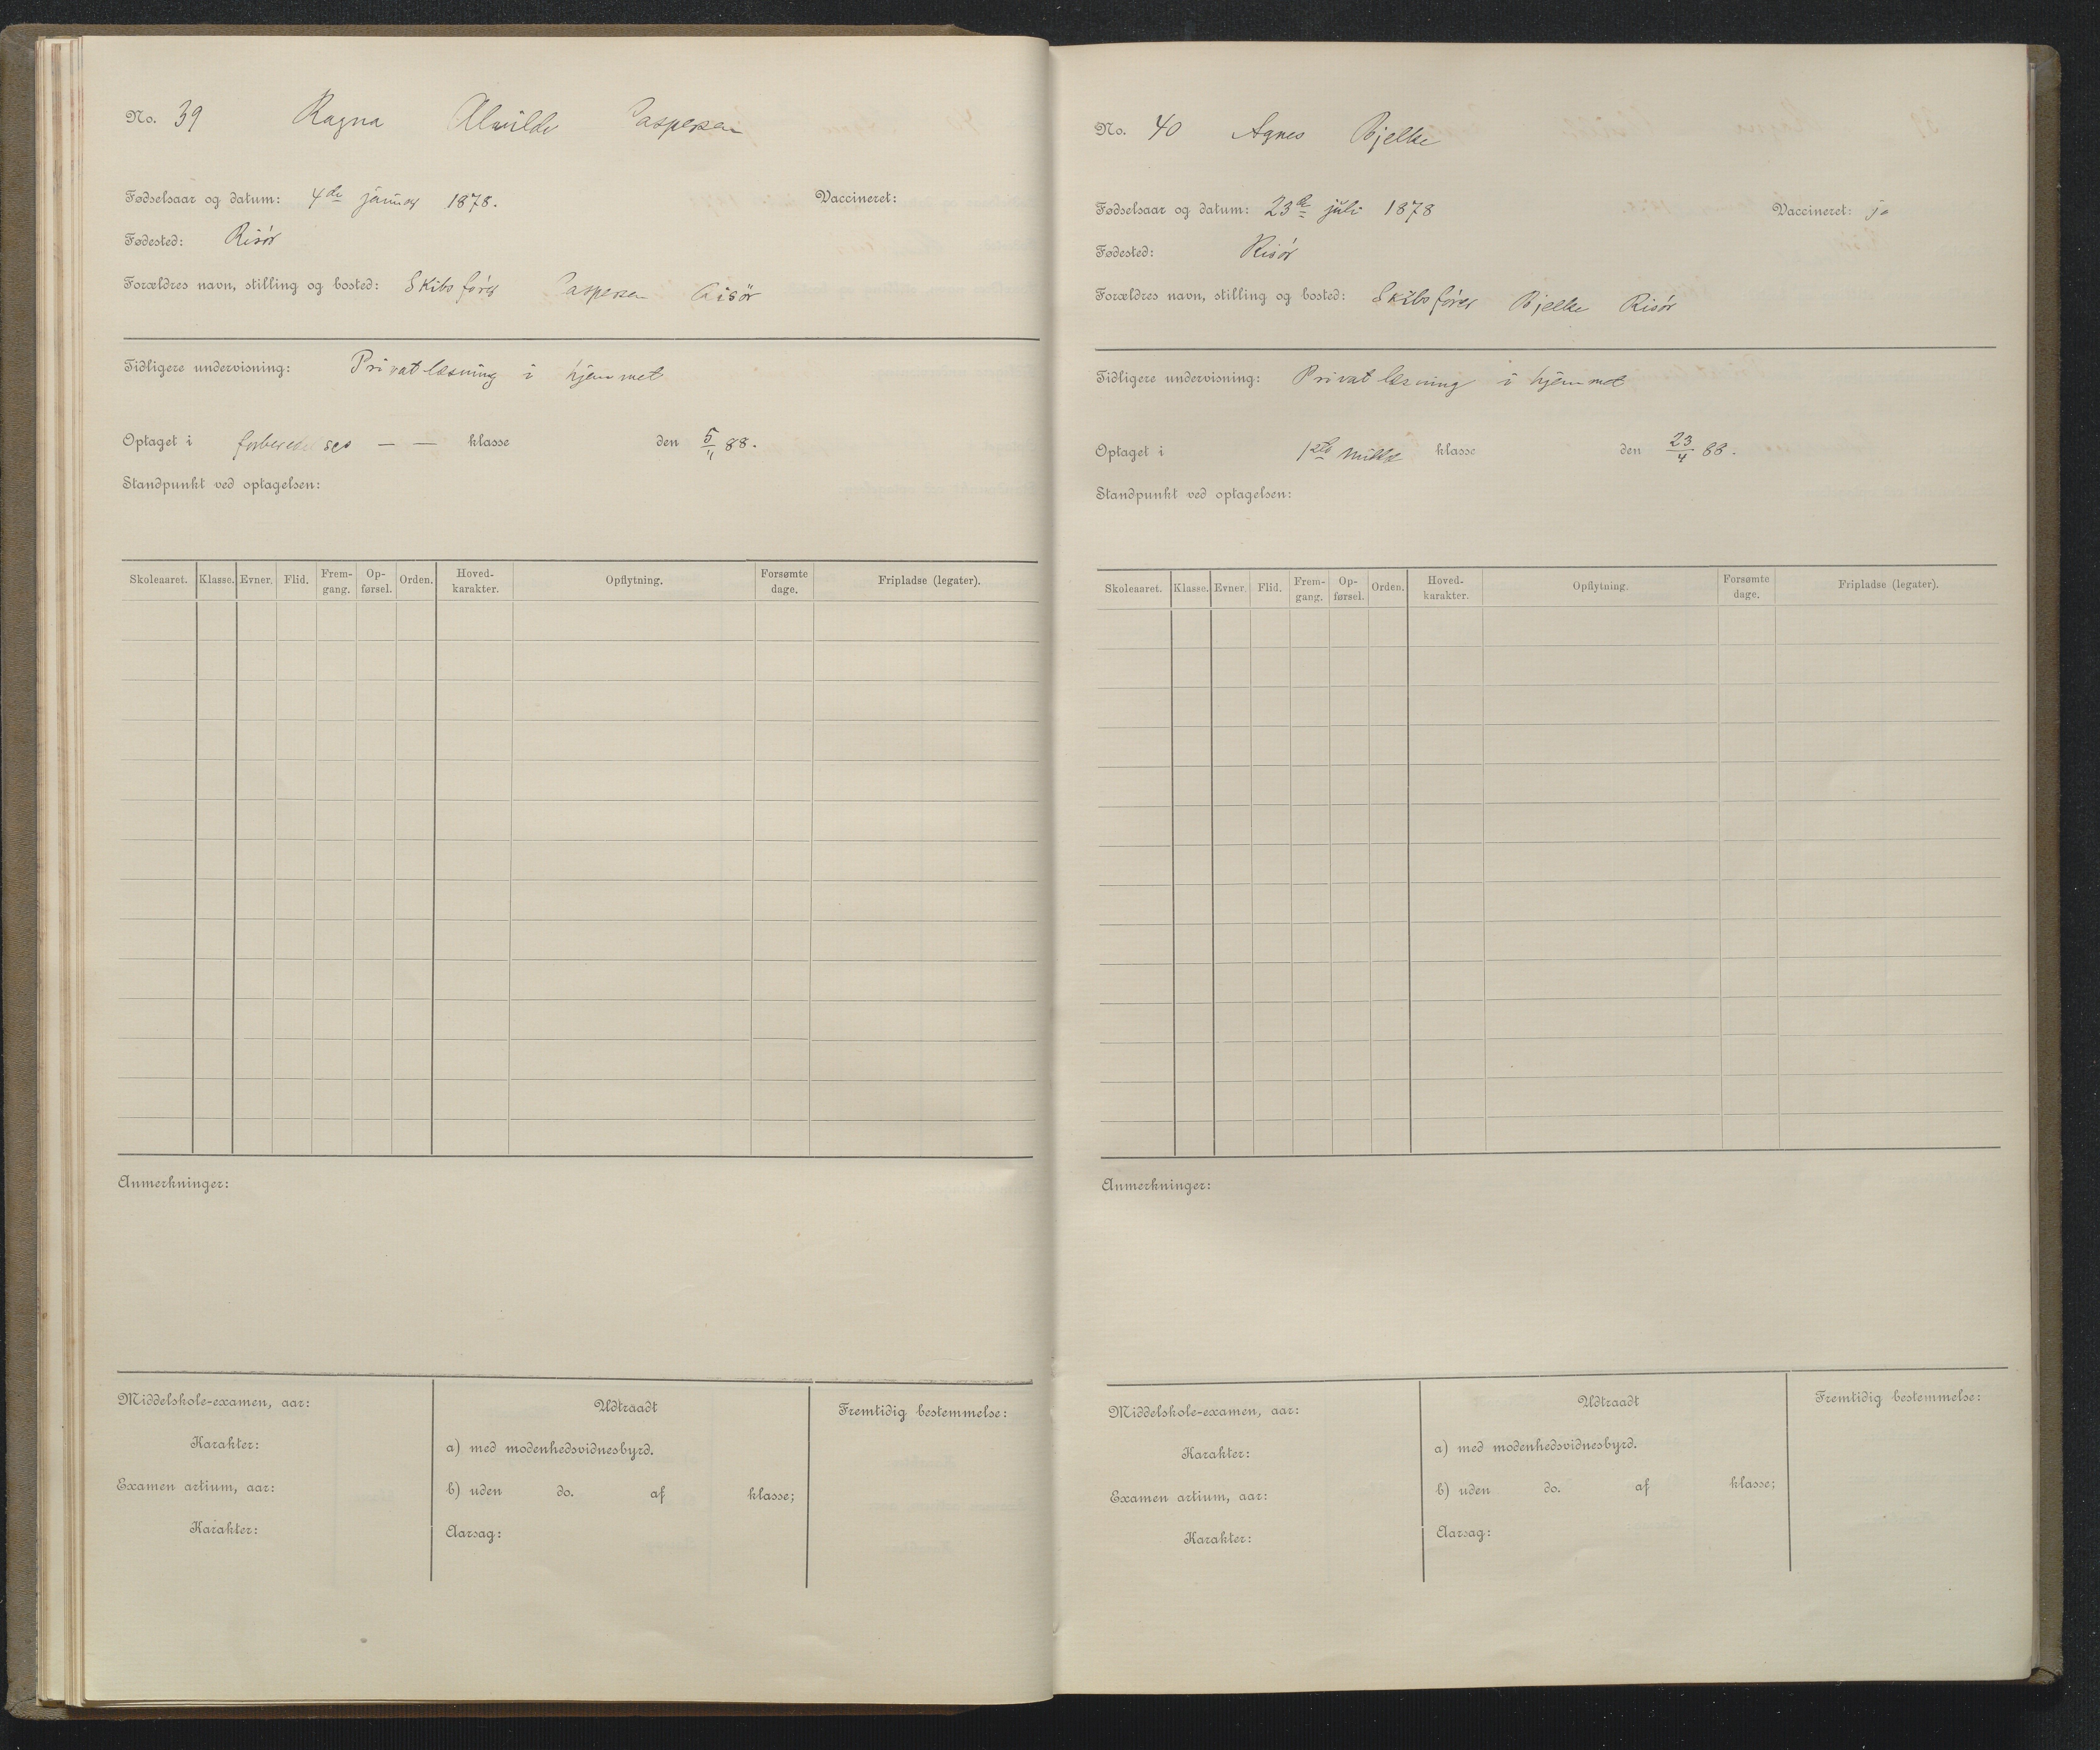 No. 39 Ragna Alvilde Caspersen
Fødselsaar og datum: 4de januar 1878. Vaccineret:
Fødested: Risör
Forældres navn, stilling og bosted: Skibsfører Caspersen Risör
Tidligere undervisning: Privatlæsning i hjemmet
Optaget i forberedelses — — klasse den 5/11 88.
Standpunkt ved optagelsen:
Skoleaaret. Klasse. Evner. Flid. Frem-gang. Op-førsel. Orden. Hoved-karakter. Opflytning. Forsømte dage. Fripladse (legater).
Anmerkninger:
Middelskole-examen, aar:
Karakter:
Examen artium, aar:
Karakter:
Udtraadt
a) med modenhedsvidnesbyrd.
b) uden do. af klasse;
Aarsag:
Fremtidig bestemmelse:
No. 40 Agnes Bjelke
Fødselsaar og datum: 23de juli 1878 Vaccineret: ja
Fødested: Risör
Forældres navn, stilling og bosted: Skibsfører Bjelke Risör
Tidligere undervisning: Privatlæsning i hjemmet
Optaget i klasse den 23/4 88.
Standpunkt ved optagelsen:
Skoleaaret. Klasse. Evner. Flid. Frem-gang. Op-førsel. Orden. Hoved-karakter. Opflytning. Forsømte dage. Fripladse (legater).
Anmerkninger:
Middelskole-examen, aar:
Karakter:
Examen artium, aar:
Karakter:
Udtraadt
a) med modenhedsvidnesbyrd.
b) uden do. af klasse;
Aarsag:
Fremtidig bestemmelse: